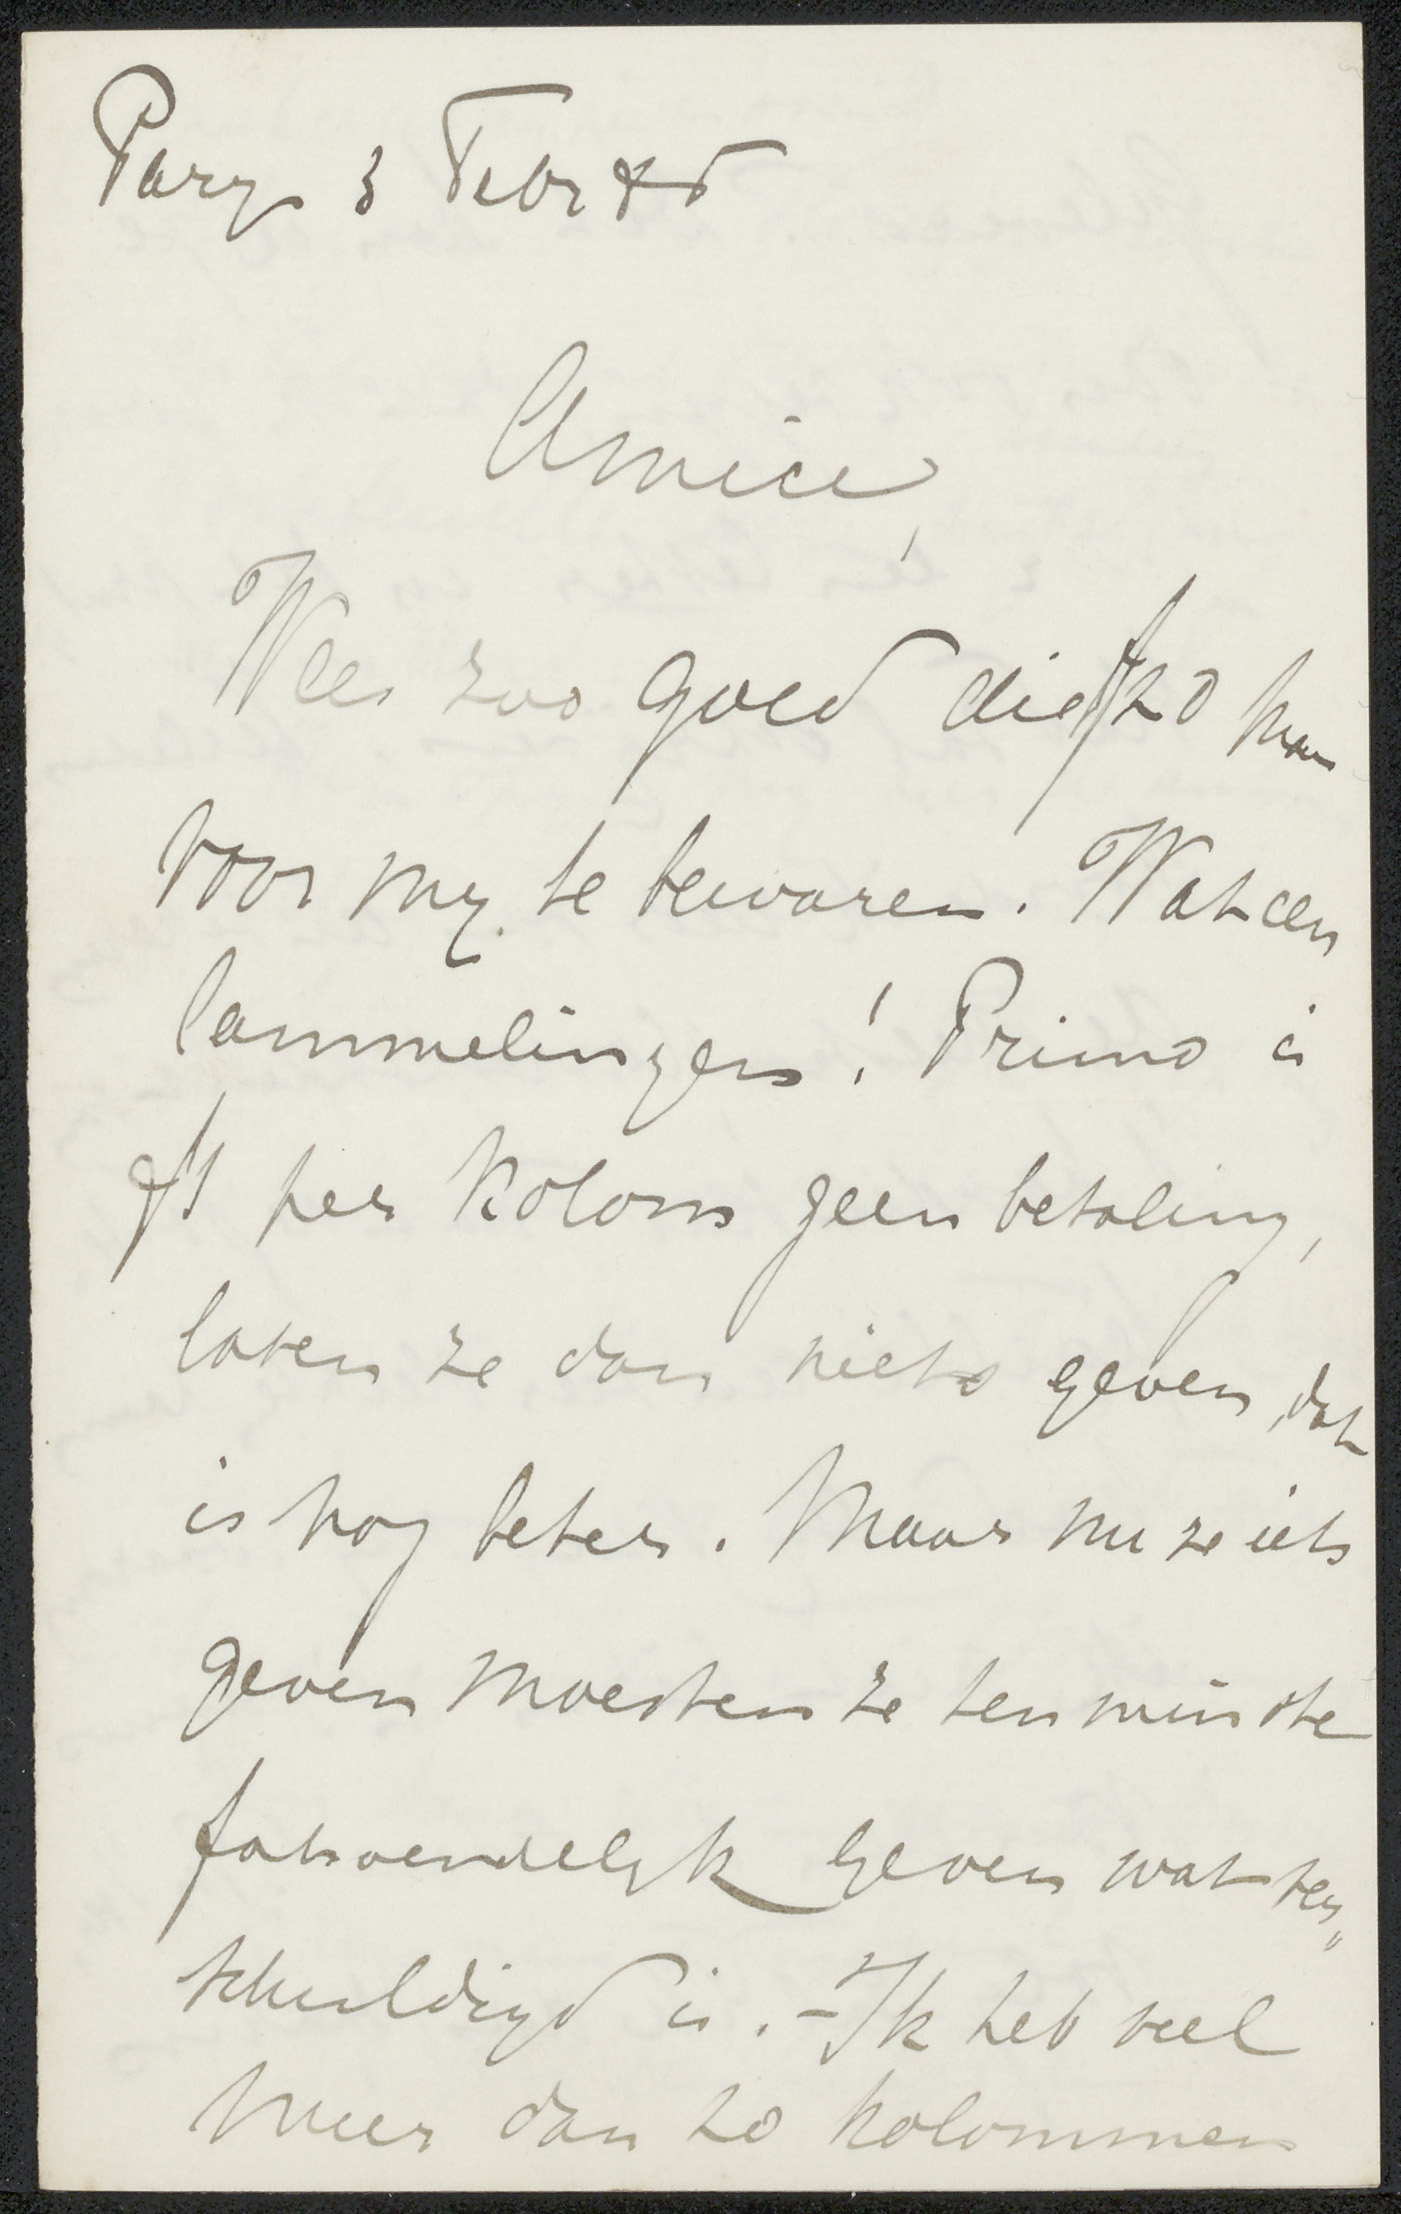 Parys 3 Febr 88
Amice,
Wees zoo goed die ƒ 20 maar
voor my te bewaren. Wat een
lammelingen! Primo is
ƒ1 per kolom geen betaling,
laten ze dan niets geven, dat
is nog beter. Maar nu ze iets
geven moesten ze ten minste
fatsoendelyk geven wat ver„
schuldigd is. - Ik heb veel
meer dan 20 kolommen